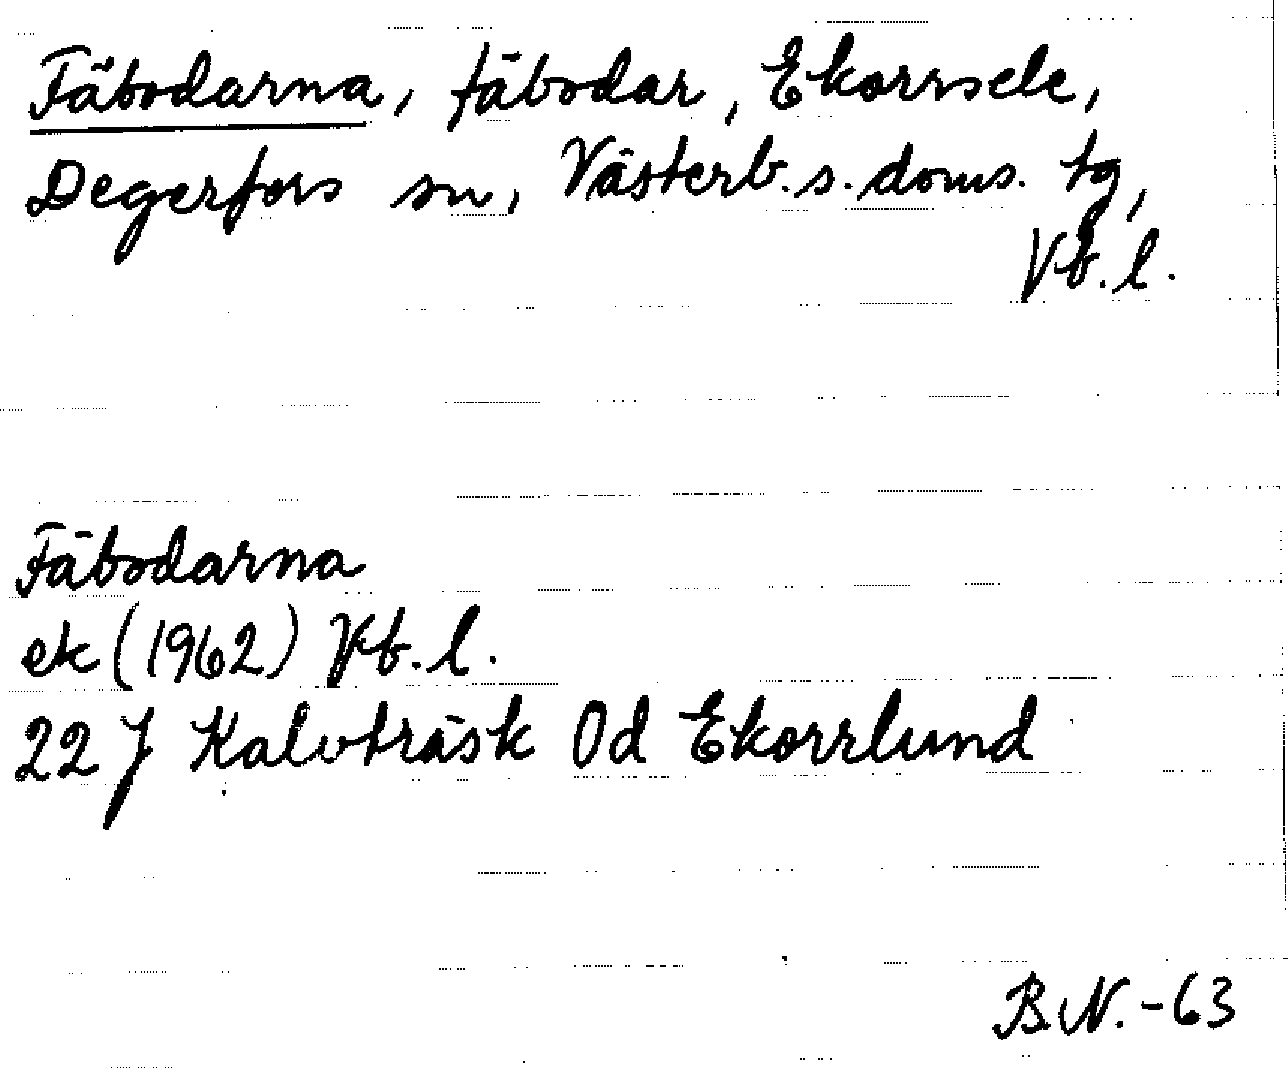 Fäbodarna, fäbodar, Ekorrsele,
Degerfors sn, Västerb. s. doms. tg,
Vb. l.
Fäbodarna
ek (1962) Vb. l.
22 J Kalvträsk 0d Ekorrlund
B.N. -63